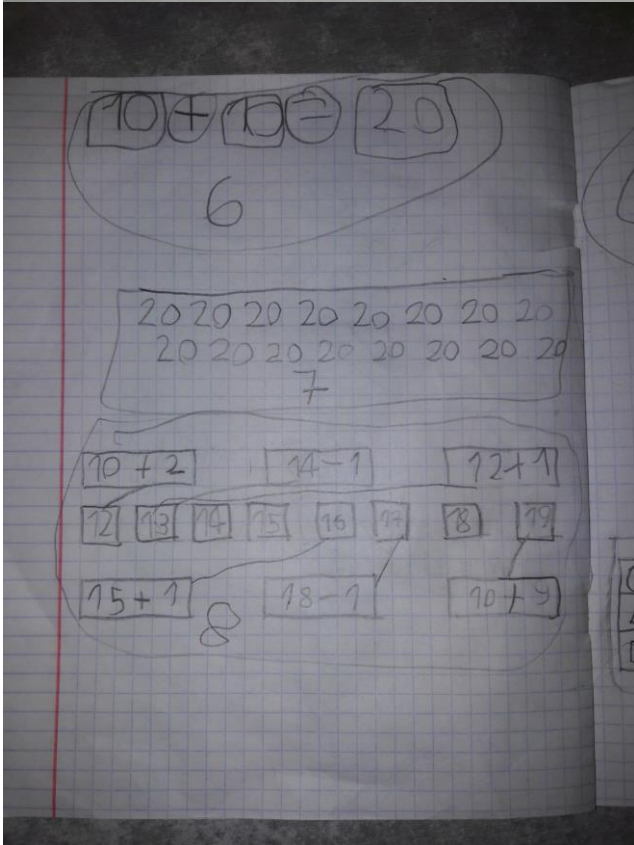 10 + 10 = 20
6
20 20 20 20 20 20 20 20
20 20 20 20 20 20 20 20
7
10 + 2 14 - 1 12 + 1
12 13 14 15 16 17 18 19
15 + 1 18 - 1 10 + 9
8